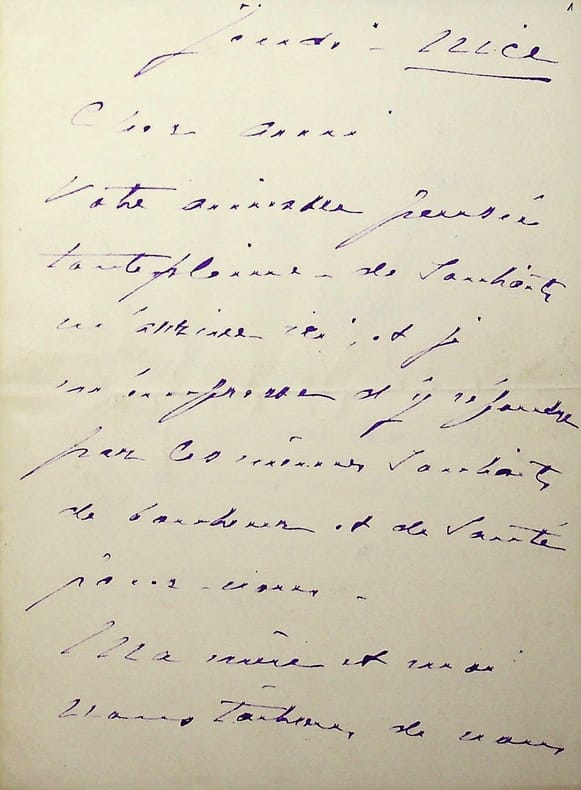 Jeudi - Nice
Cher ami
Votre aimable pensée
toute pleine - de Souhaits
m'arrive ici, et je
m'empresse d'y répondre
par les mêmes Souhaits
de bonheur et de Santé
pour vous -
Ma mère et moi
nous tâchons de nous